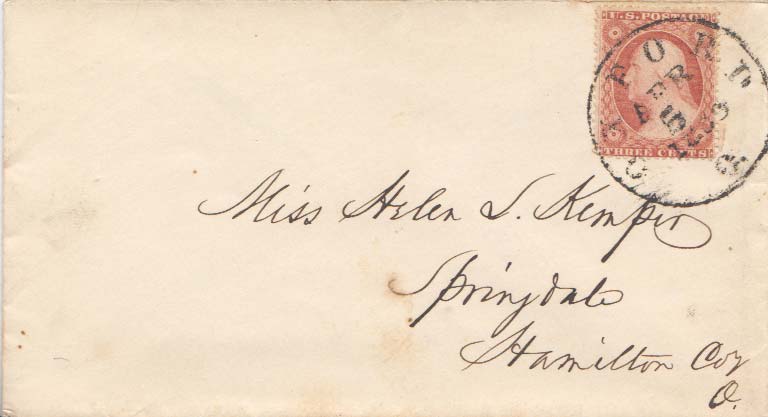 U.S. POSTAGE
THREE CENTS
OXFORD
APR
6
1859
O
Miss Helen S. Kemper
Springdale
Hamilton Coy
O.